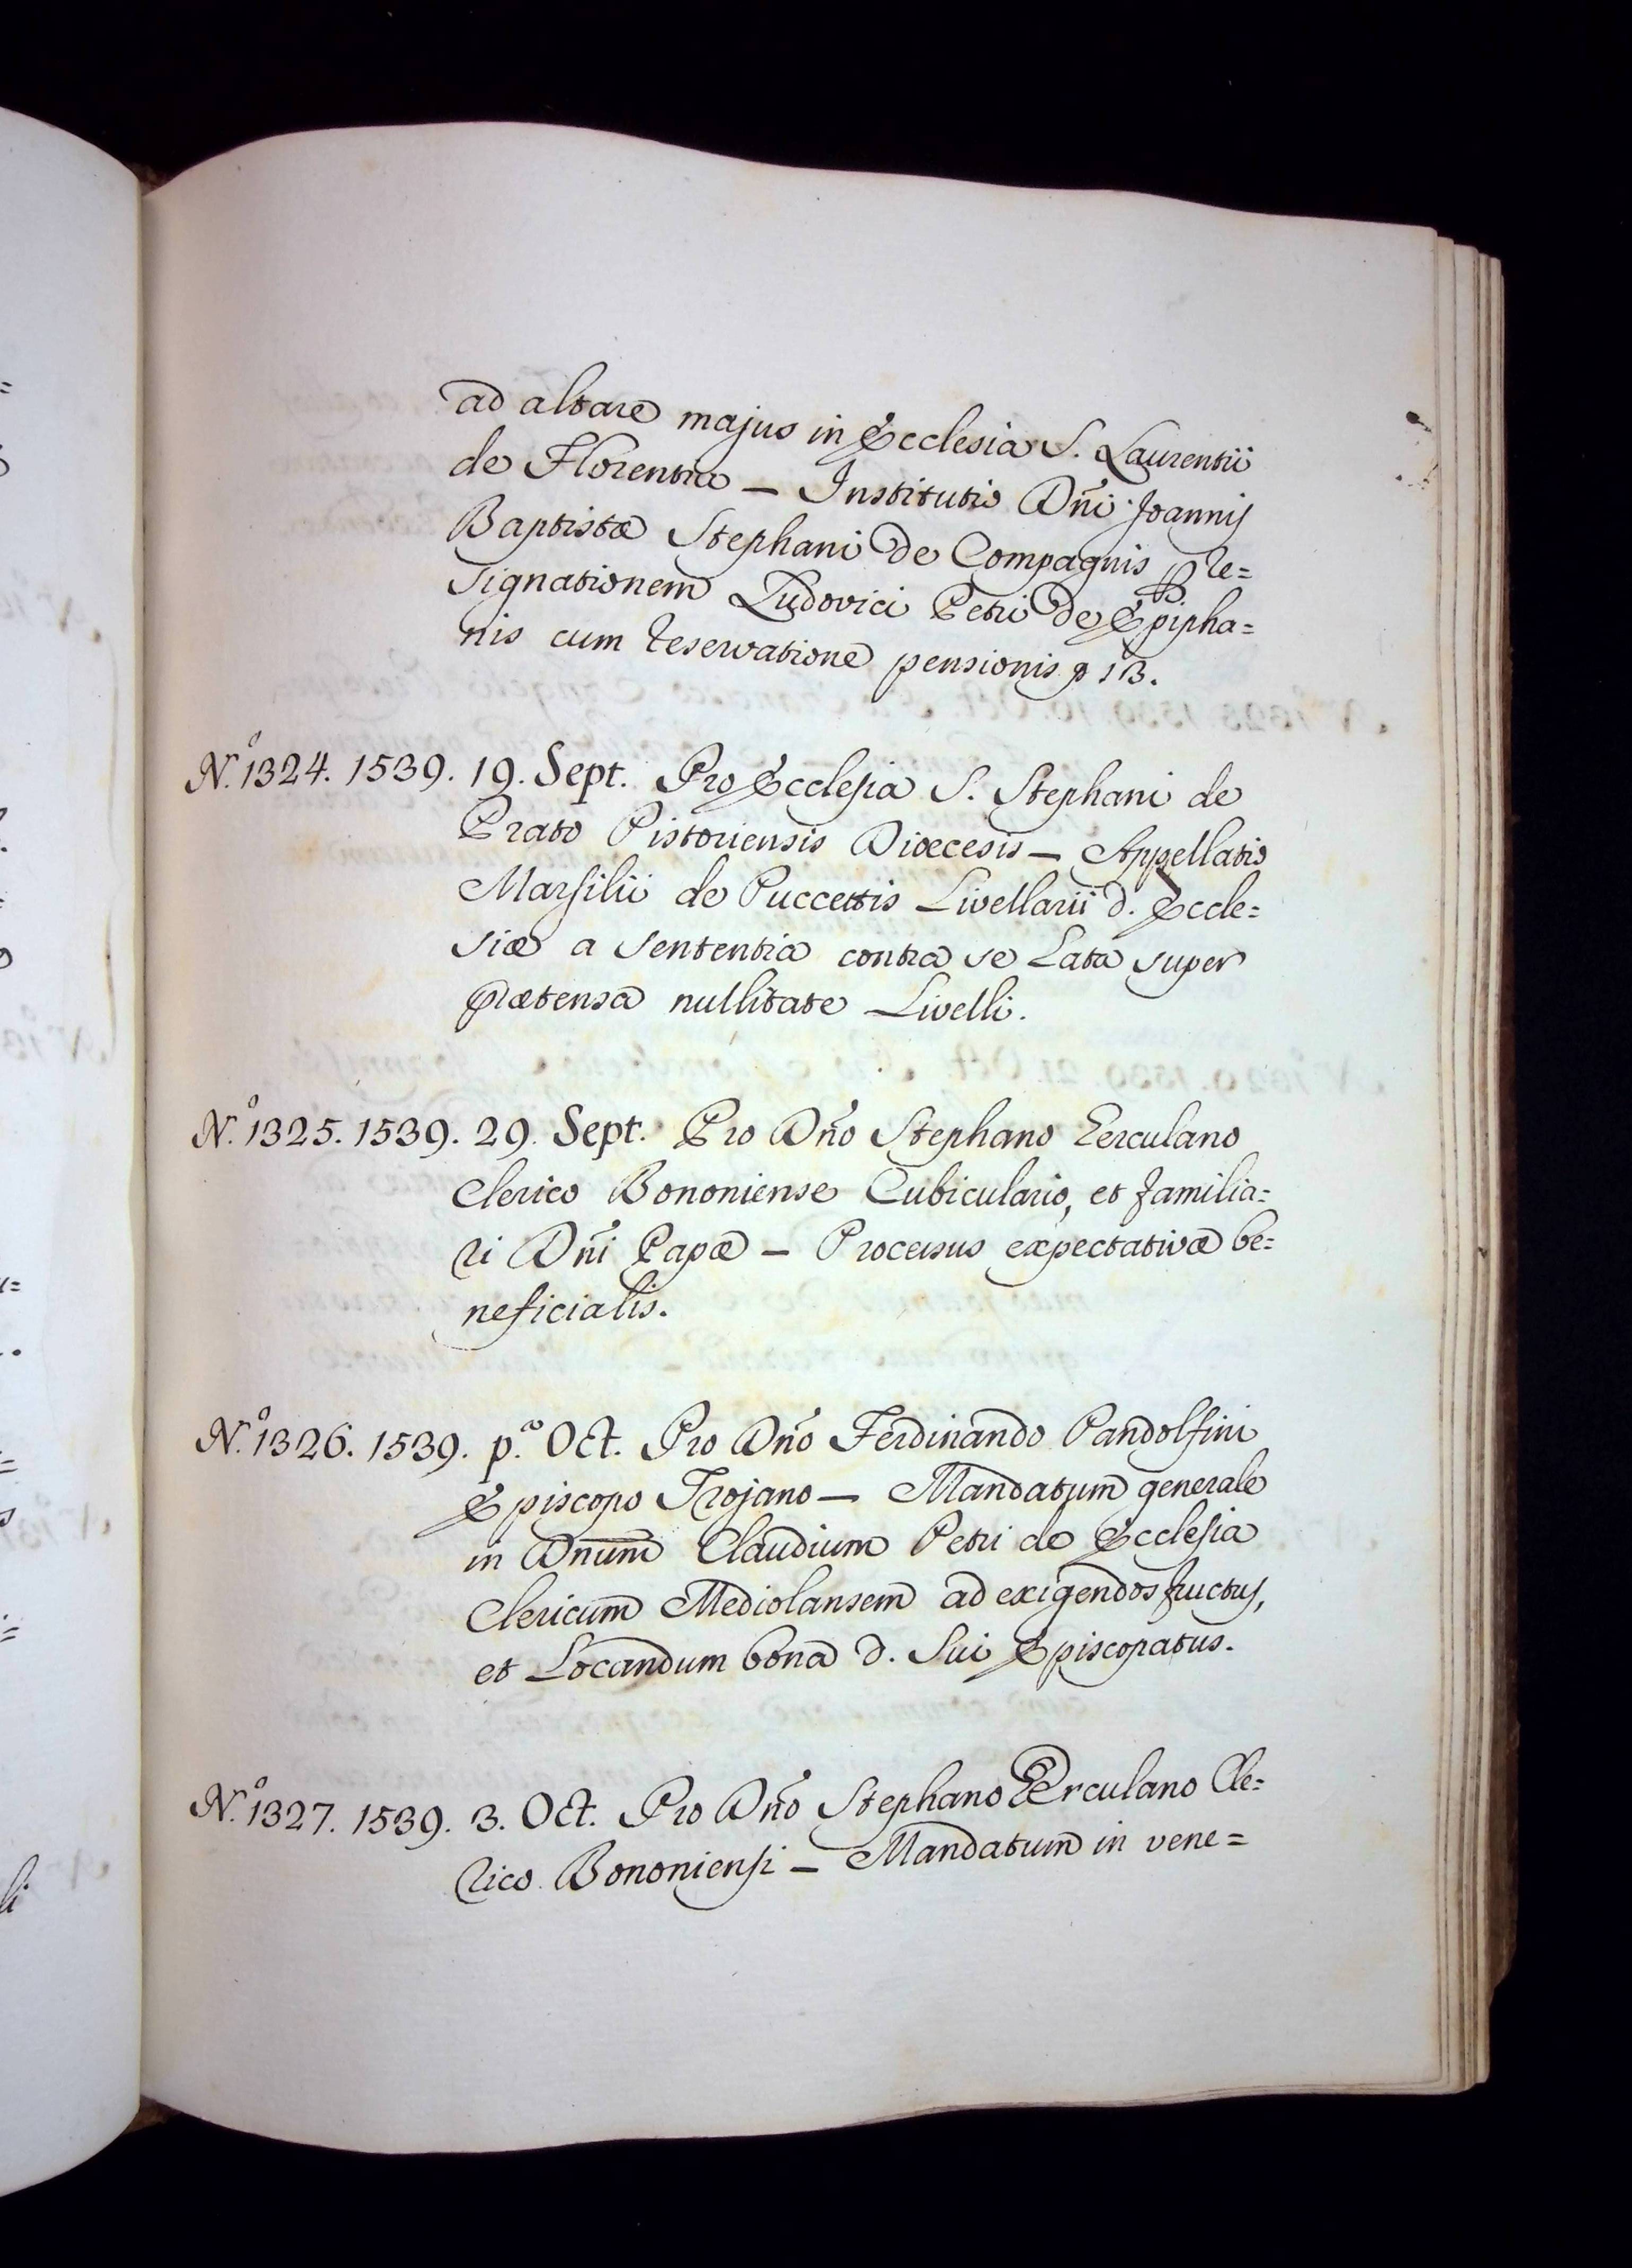 ad altare majus in Ecclesia S. Laurentii
de Florentia — Institutio Dñi Joannis
Baptistæ Stephani de Compagnis p re=
signationem Ludovici Petri de Epipha=
nis cum reservatione pensionis
N.º 1324. 1539. 19. Sept. Pro Ecclesia S. Stephani de
Prato Pistoriensis Diœcesis — Appellatio
Marsilii de Puccettis Livellarii d. Eccle=
siæ a sententia contra se Lata super
prætensa nullitate Livelli.
N.º 1325. 1539. 29. Sept. Pro Dño Stephano Erculano
Clerico Bononiense Cubiculario, et familia=
ri Dñi Papæ — Processus expectativæ be=
neficialis.
N.º 1326. 1539. p.º Oct. Pro Dño Ferdinando Pandolfini
Episcopo Trojano — Mandatum generale
in Dnum Claudium Petri de Ecclesia
Clericum Mediolansem ad exigendos fructus,
et Locandum bona d. sui Episcopatus.
N.º 1327. 1539. 3. Oct. Pro Dño Stephano Erculano Cle=
rico Bononiensi — Mandatum in vene=